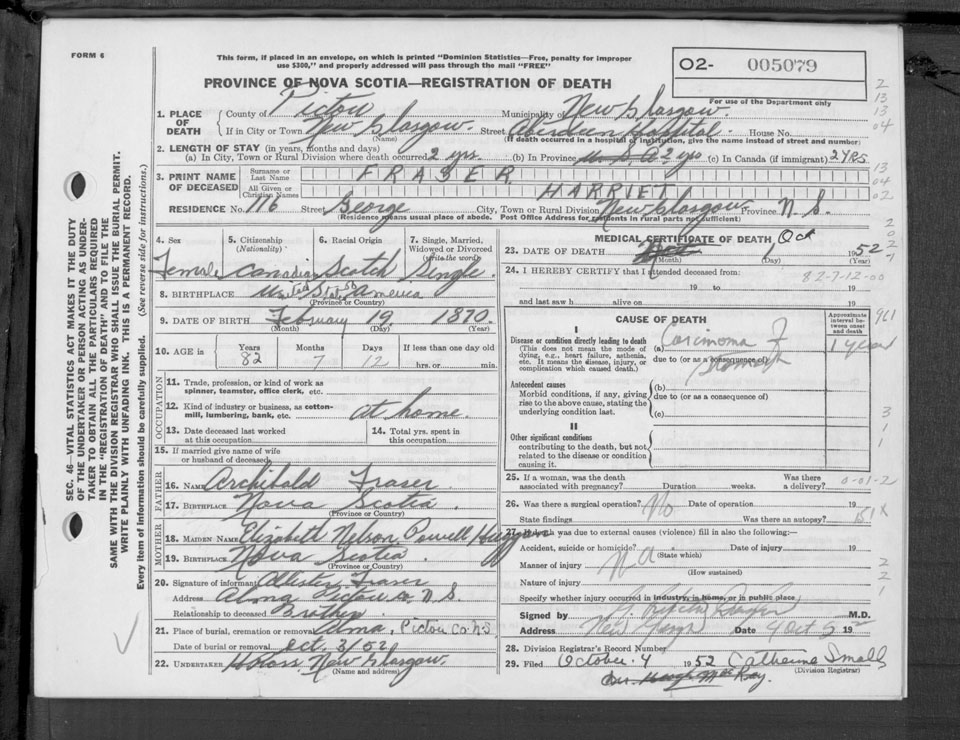 FORM 6
This form, if placed in an envelope, on which is printed "Dominion Statistics—Free, penalty for improper
use $300," and properly addressed will pass through the mail "FREE"
PROVINCE OF NOVA SCOTIA—REGISTRATION OF DEATH
O2- 005079
For use of the Department only
1. PLACE OF DEATH
County of Pictou Municipality of New Glasgow.
If in City or Town New Glasgow. Street Aberdeen Hospital House No.
(Name) (If death occurred in a hospital or institution, give name instead of street and number)
2. LENGTH OF STAY (in years, months and days)
(a) In City, Town or Rural Division where death occurred 2 yrs. (b) In Province 2 yrs (c) In Canada (if immigrant) 2 YRS.
3. PRINT NAME OF DECEASED
Surname or Last Name FRASER
All Given or Christian Names HARRIET
RESIDENCE No. 116 Street George City, Town or Rural Division New Glasgow. Province N. S.
(Residence means usual place of abode. Post Office Address for residents in rural parts not sufficient)
4. Sex 5. Citizenship (Nationality) 6. Racial Origin 7. Single, Married, Widowed or Divorced (write the word)
Female Canadian Scotch Single.
8. BIRTHPLACE United States America
(Province or Country)
9. DATE OF BIRTH February 19, 1870
(Month) (Day) (Year)
10. AGE in Years Months Days If less than one day old
82 7 12 hrs. or min.
OCCUPATION
11. Trade, profession, or kind of work as spinner, teamster, office clerk, etc.
12. Kind of industry or business, as cotton-mill, lumbering, bank, etc. at home.
13. Date deceased last worked at this occupation 14. Total yrs. spent in this occupation
15. If married give name of wife or husband of deceased
FATHER
16. NAME Archibald Fraser
17. BIRTHPLACE Nova Scotia
(Province or Country)
MOTHER
18. MAIDEN NAME Elizabeth Nelson Powell
19. BIRTHPLACE Nova Scotia
(Province or Country)
20. Signature of informant Allister Fraser
Address Alma Pictou Co. N S
Relationship to deceased Brother
21. Place of burial, cremation or removal Alma, Pictou Co. N.S.
Date of burial or removal Oct. 3/52
22. UNDERTAKER New Glasgow.
(Name and address)
MEDICAL CERTIFICATE OF DEATH
23. DATE OF DEATH Oct 1952
(Month) (Day) (Year)
24. I HEREBY CERTIFY that I attended deceased from:
82-7-12-00
19 to 19
and last saw h alive on 19
CAUSE OF DEATH
Approximate interval between onset and death
I
Disease or condition directly leading to death
(This does not mean the mode of dying, e.g., heart failure, asthenia, etc. It means the disease, injury, or complication which caused death.)
(a) Carcinoma of Stomach 1 year
due to (or as a consequence of)
Antecedent causes
Morbid conditions, if any, giving rise to the above cause, stating the underlying condition last.
(b)
due to (or as a consequence of)
(c)
II
Other significant conditions
contributing to the death, but not related to the disease or condition causing it.
25. If a woman, was the death associated with pregnancy? Duration weeks. Was there a delivery? 0-01-2
26. Was there a surgical operation? No Date of operation 19
State findings Was there an autopsy? 151 X
27. If death was due to external causes (violence) fill in also the following:—
Accident, suicide or homicide? Date of injury 19
(State which)
Manner of injury
(How sustained)
Nature of injury
Specify whether injury occurred in industry, in home, or in public place
Signed by M.D.
Address New Date 4 Oct 5 2 19
28. Division Registrar's Record Number
29. Filed October 4 1952 Catherine Small
(Division Registrar)
SEC. 46—VITAL STATISTICS ACT MAKES IT THE DUTY
OF THE UNDERTAKER OR PERSON ACTING AS UNDER-
TAKER TO OBTAIN ALL THE PARTICULARS REQUIRED
IN THE "REGISTRATION OF DEATH" AND TO FILE THE
SAME WITH THE DIVISION REGISTRAR WHO SHALL ISSUE THE BURIAL PERMIT.
WRITE PLAINLY WITH UNFADING INK. THIS IS A PERMANENT RECORD.
Every item of information should be carefully supplied. (See reverse side for instructions.)